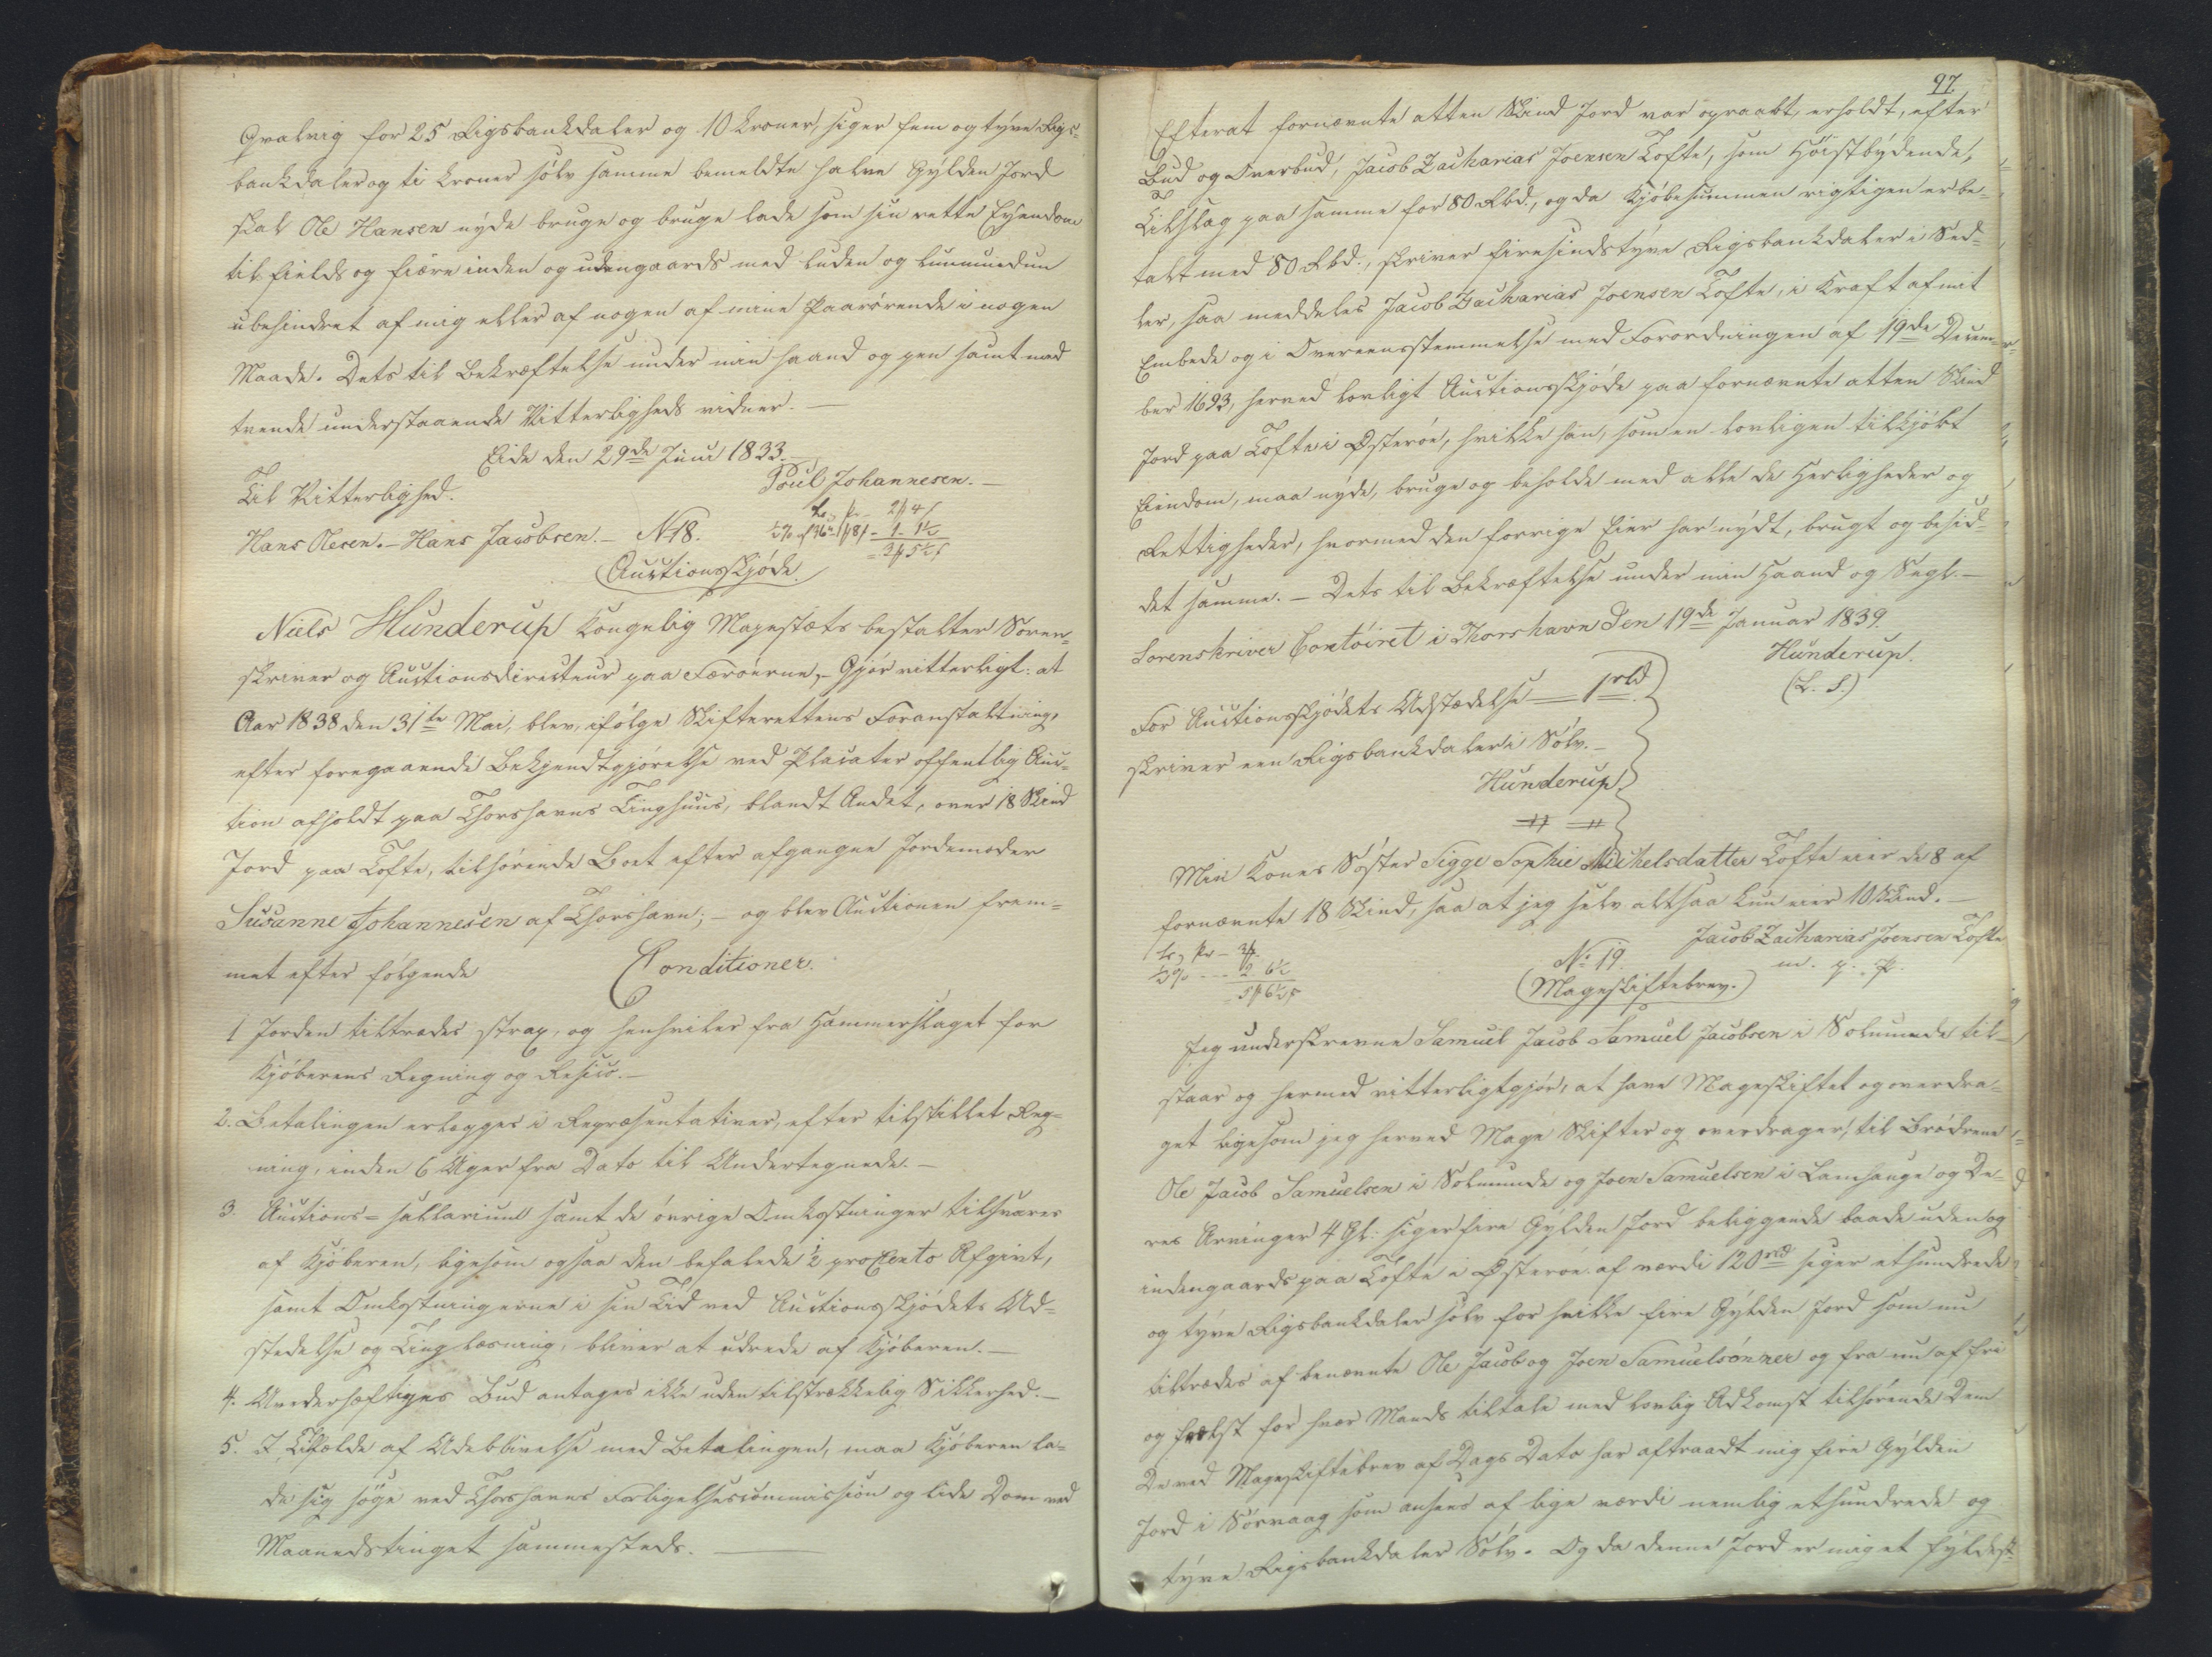 Qvalvig for 25 Rigsbankdaler og 10 kroner, siger fem og tyve Rigs=
bankdaler og ti kroner sølv samme bemeldte halve Gylden Jord
skal Ole Hansen nyde bruge og bruge lade som sin rette Eyendom
til fields og fiære inden og udengaards med luden og lunnunden
ubehindret af mig eller af nogen af mine Paarørende i nogen
Maade. Dets til Bekræftelse under min haand og pen samt med
tvende understaaende Vitterligheds vidner. —
Eide den 29de Juni 1833. —
Til Vitterlighed. Poul Johannesen. —
Hans Olesen. — Hans Jacobsen. — No 18.
Auctionsskjøde.
Niels Hunderup Kongelig Mayestæts bestalter Soren=
skriver og Auctionsdirecteur paa Færøerne, – Gjør vitterligt: at
Aar 1838 den 31te Mai, blev, ifølge Skifterettens Foranstaltning,
efter foregaaende Bekjendtgjørelse ved Placater offentlig Auc=
tion afholdt paa Thorshavns Tinghuus, blandt Andet, over 18 Skind
Jord paa Tofte, tilhørende Boet efter afgangne Jordemoder
Susanne Johannesen af Thorshavn; – og blev Auctionen frem=
met efter følgende Conditioner.
1 Jorden tiltrædes strax, og henhviler fra Hammerslaget for
Kjøberens Regning og Resico. —
2. Betalingen erlægges i Repræsentativer, efter tilstillet Reg=
ning, inden 6 Uger fra Dato til Undertegnede. —
3. Auctions= sallarium samt de øvrige Omkostninger tilsvares
af Kjøberen, ligesom ogsaa den befalede ½ proCento Afgivt,
samt Omkostningerne i sin Tid ved Auctionsskjødets Ud=
stedelse og Tinglæsning, bliver at udrede af Kjøberen. —
4. Uvederhæftiges Bud antages ikke uden tilstrækkelig Sikkerhed. —
5. I Tilfælde af Udeblivelse med Betalingen, maa Kjøberen la=
de sig søge ved Thorshavns Forligelsescommission og lide Dom ved
Maanedstinget sammesteds. —
97.
Efterat fornævnte atten Skind Jord var opraabt, erholdt, efter
Bud og Overbud, Jacob Zacharias Joensen Tofte, som Høistbydende,
Tilslag paa samme for 80 Rbd., og da Kjøbesummen rigtigen er be=
talt med 80 Rbd., skriver firesindstyve Rigsbankdaler i Sed=
ler, saa meddeles Jacob Zacharias Joensen Tofte, i Kraft af mit
Embede og i Overeensstemmelse med Forordningen af 19de Decem=
ber 1693, herved lovligt Auctionsskjøde paa fornævnte atten Skind
Jord paa Tofte i Østerøe, hvilke han, som en lovligen tilkjøbt
Eiendom, maa nyde, bruge og beholde med alle de Herligheder og
Rettigheder, hvormed den forrige Eier har nydt, brugt og besid=
det samme. — Dets til Bekræftelse under min Haand og Segl. —
Sorenskriver Contoiret i Thorshavn Den 19de Januar 1839.
Hunderup.
(L. S.)
For Auctionsskjødets Udstædelse — 1 rbd
skriver een Rigsbankdaler i Sølv. —
Hunderup.
Min Kones Søster Sigge Sophie Michelsdatter Tofte eier de 8 af
fornævnte 18 Skind, saa at jeg selv altsaa kun eier 10 Skind. —
Jacob Zacharias Joensen Tofte
m. p. P.
No 19.
(Mageskiftebrev.)
Jeg underskrevne Samuel Jacob Samuel Jacobsen i Solmunde til=
staar og hermed vitterligtgjør, at have Mageskiftet og overdra=
get ligesom jeg herved Mage Skifter og overdrager, til Brødrene
Ole Jacob Samuelsen i Solmunde og Joen Samuelsen i Lamhauge og De=
res Arvinger 4 Gl: siger fire Gylden Jord beliggende baade uden og
indengaards paa Tofte i Østerøe af værdi 120 rbd siger ethundrede
og tyve Rigsbankdaler sølv for hvilke fire Gylden Jord som nu
tiltrædes af benævnte Ole Jacob og Joen Samuelsønner og fra nu af fri
og frelst for hver Mands tiltale med lovlig Adkomst tilhørende Dem
De ved Mageskiftebrev af Dags Dato har aftraadt mig fire Gylden
Jord i Sørvaag som ansees af lige værdi nemlig ethundrede og
tyve Rigsbankdaler Sølv. Og da denne Jord er mig et fyldest=